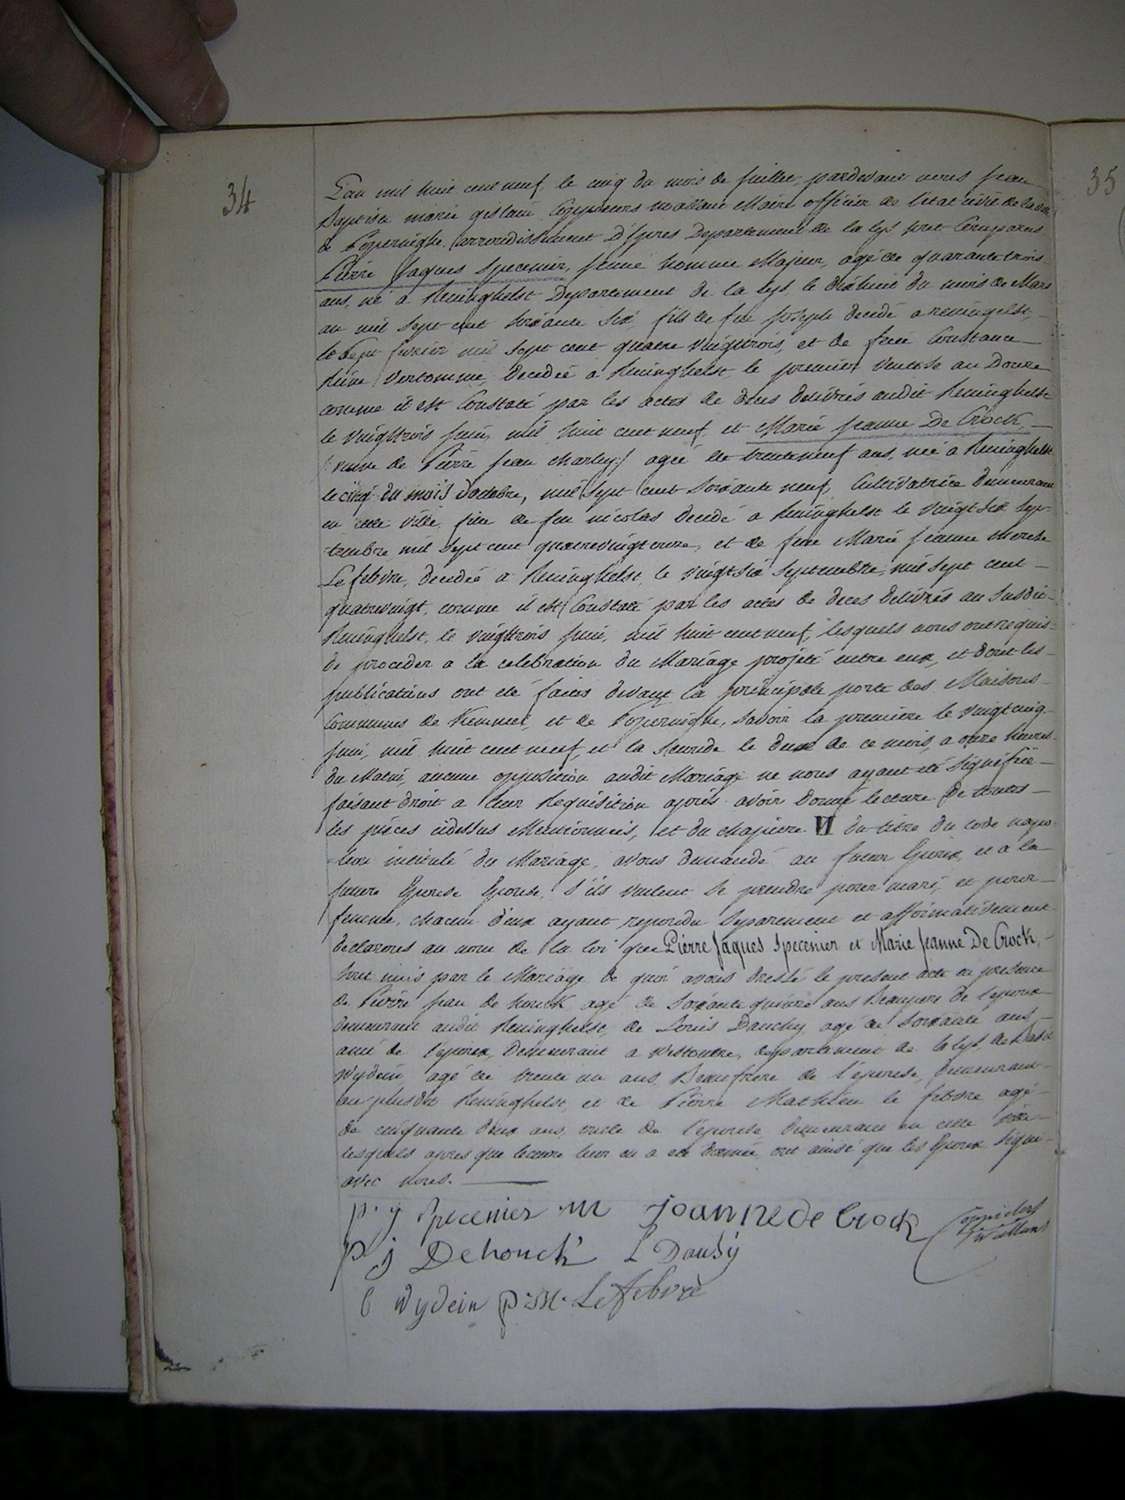 34
35
L'an mil huit cent neuf, le cinq du mois de juillet, pardevant nous Jean
Baptiste marie gislain Coppieters Maire officier de l'état civil de la ville
de Poperinghe, arrondissement D'Ypres Departement de la Lys sont Comparus
Pierre Jaques Specenier, jeune homme Majeur, agé de quarante trois
ans, né a Reninghelst Departement de la Lys, le dixhuit du mois de Mars
an mil Sept cent soixante Six, fils de feu Joseph decédé a reningelst,
le Sept fevrier mil Sept cent quatre vingttrois, et de feue Constance
Reine Vertomme, decedée a Reninghelst le premier Ventose an Douze
comme il est Constaté par les actes de deces delivrés audit Reninghelst
le vingttrois juin, mil huit cent neuf, et Marie Jeanne De Crock,
veuve de Pierre Jean Marley agée de trenteneuf ans, née a Reninghelst
le cinq du mois d'octobre, mil Sept Cent Soixante neuf, Cultivatrice demeurant
en cette ville, fille de feu nicolas decedé a Reninghelst le vingt six Sep-
tembre mil Sept cent quatrevingt onze, et de feue Marie Jeanne
Lefebvre, decédée a Reninghelst le vingtsix Septembre, mil Sept cent
quatrevingt, comme il est Constaté par les actes de deces delivrés au Susdit
Reninghelst, le vingttrois juin, mil huit cent neuf, lesquels nous ont requis
de proceder a la celebration du Mariage projeté entre eux, et dont les
publications ont été faites devant la principale porte des Maisons
Communes de Kemmel, et de Poperinghe, Savoir la premiere le vingtcinq
juin, mil huit cent neuf, et la Seconde le deux de ce mois, a onze heures
du Matin, aucune opposition audit Mariage ne nous ayant été Signifiée
faisant droit a leur Requisition après avoir donné lecture de toutes
les pièces cidessus Mentionnées, et du chapitre VI du titre du code napo
leon intitulé du Mariage, avons demandé au futur Epoux, et a la
future Epouse Epouse, S'ils veulent Se prendre pour mari, et pour
femme, chacun d'eux ayant repondu Separement et affirmativement
declarons au nom de la loi que Pierre Jaques Specenier et Marie Jeanne De Crock,
sont unis par le Mariage de quoi avons dressé le present acte en presence
de Pierre Jean de houck agé de Soixante quinze ans Beaupere de l'epoux
demeurant audit Reninghelst, de Louis Dauchy agé de Soixante ans
ami de l'epoux, demeurant a Westoutre, departement de la Lys, de
Wydein, agé de trente un ans, Beaufrere de l'épouse, demeurant
au Reninghelst, et de Pierre Mathieu le febvre agé
de cinquante deux ans, oncle de l'épouse demeurant en cette ville
lesquels apres que lecture leur en a été donnée, ont ainsi que les Epoux Signé
avec nous.
p. j Specenier m joanne de Crock Coppieters
p j Dehouck L Dauchy
Wydein p: M: Lefebvre